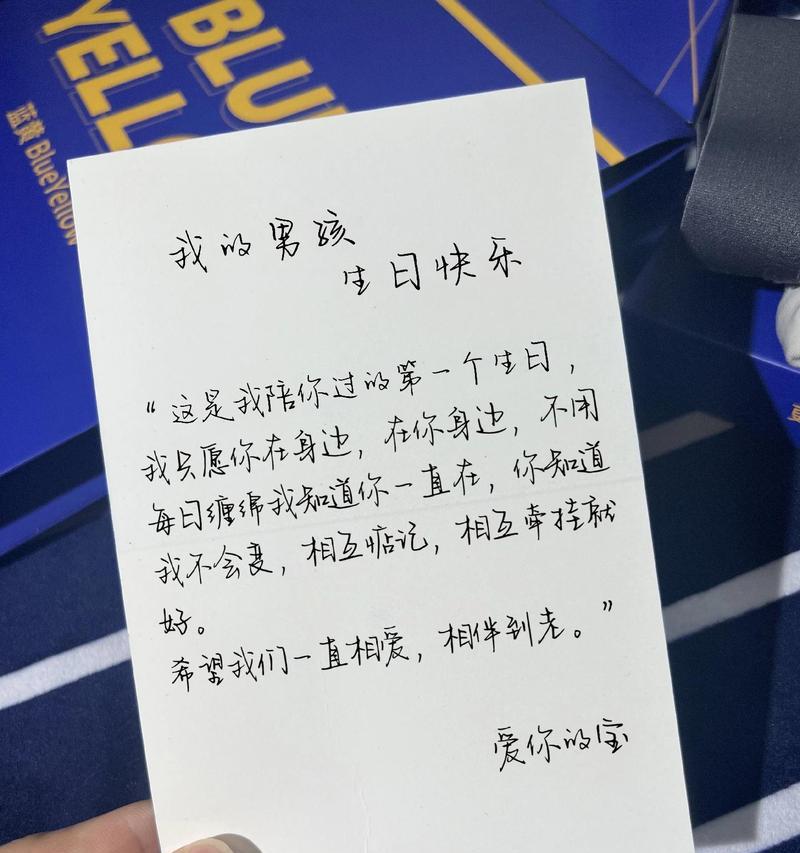 BLUE
YELLO
蓝黄 BlueYellow
我的男孩
生日快乐
“这是我陪你过的第一个生日,
我只愿你在身边,在你身边,不用
每日缠绵我知道你一直在,你知道
我不会变,相互惦记,相互牵挂就
好。
希望我们一直相爱,相伴到老。”
爱你的宝